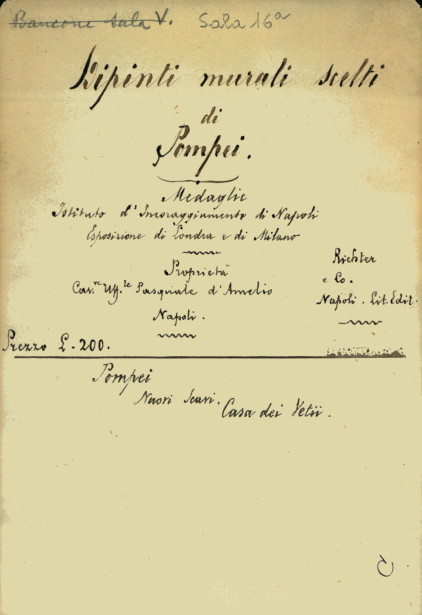 Bancone sala V. Sala 16ª
Dipinti murali scelti
di
Pompei.
Medaglie
Istituto d'Incoraggiamento di Napoli
Esposizione di Londra e di Milano
Proprietà
Cav.re Uff.le Pasquale d'Amelio
Napoli.
Richter
e Co.
Napoli. Lit. Edit.
Prezzo L. 200.
Pompei
Nuovi Scavi. Casa dei Vetii.